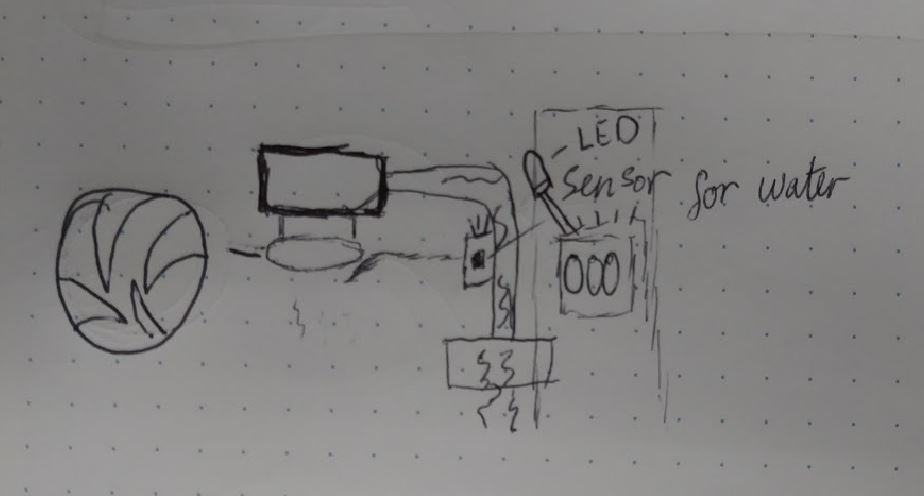 LED
Sensor for water
000